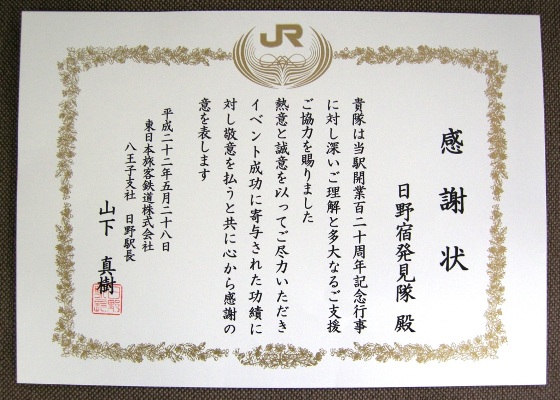 JR
感謝状
日野宿発見隊 殿
貴隊は当駅開業百二十周年記念行事
に対し深いご理解と多大なるご支援
ご協力を賜りました
熱意と誠意を以ってご尽力いただき
イベント成功に寄与された功績に
対し敬意を払うと共に心から感謝の
意を表します
平成二十二年五月二十八日
東日本旅客鉄道株式会社
八王子支社 日野駅長
山下 真樹